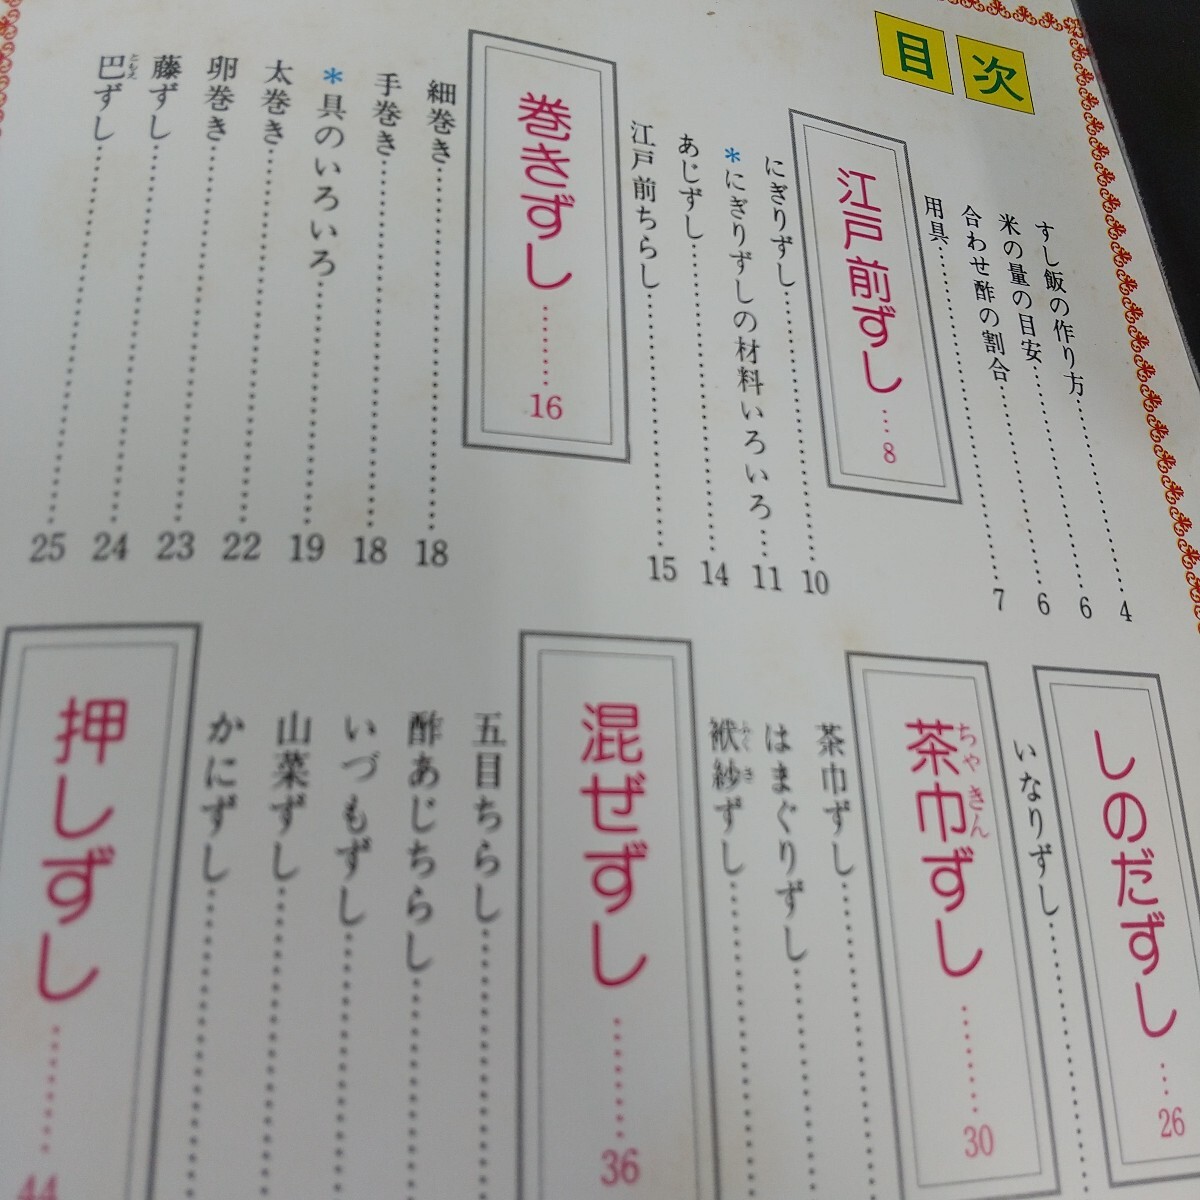 目次
すし飯の作り方……4
米の量の目安……6
合わせ酢の割合……6
用具……7
江戸前ずし…8
にぎりずし……10
*にぎりずしの材料いろいろ…11
あじずし……14
江戸前ちらし……15
巻きずし……16
細巻き……18
手巻き……18
*具のいろいろ……19
太巻き……22
卵巻き……23
藤ずし……24
巴ずし……25
ともえ
しのだずし…26
いなりずし……
茶巾ずし……30
ちゃきん
茶巾ずし……
はまぐりずし……
袱紗ずし……
ふくさ
混ぜずし……36
五目ちらし……
酢あじちらし……
いづもずし……
山菜ずし……
かにずし……
押しずし……44